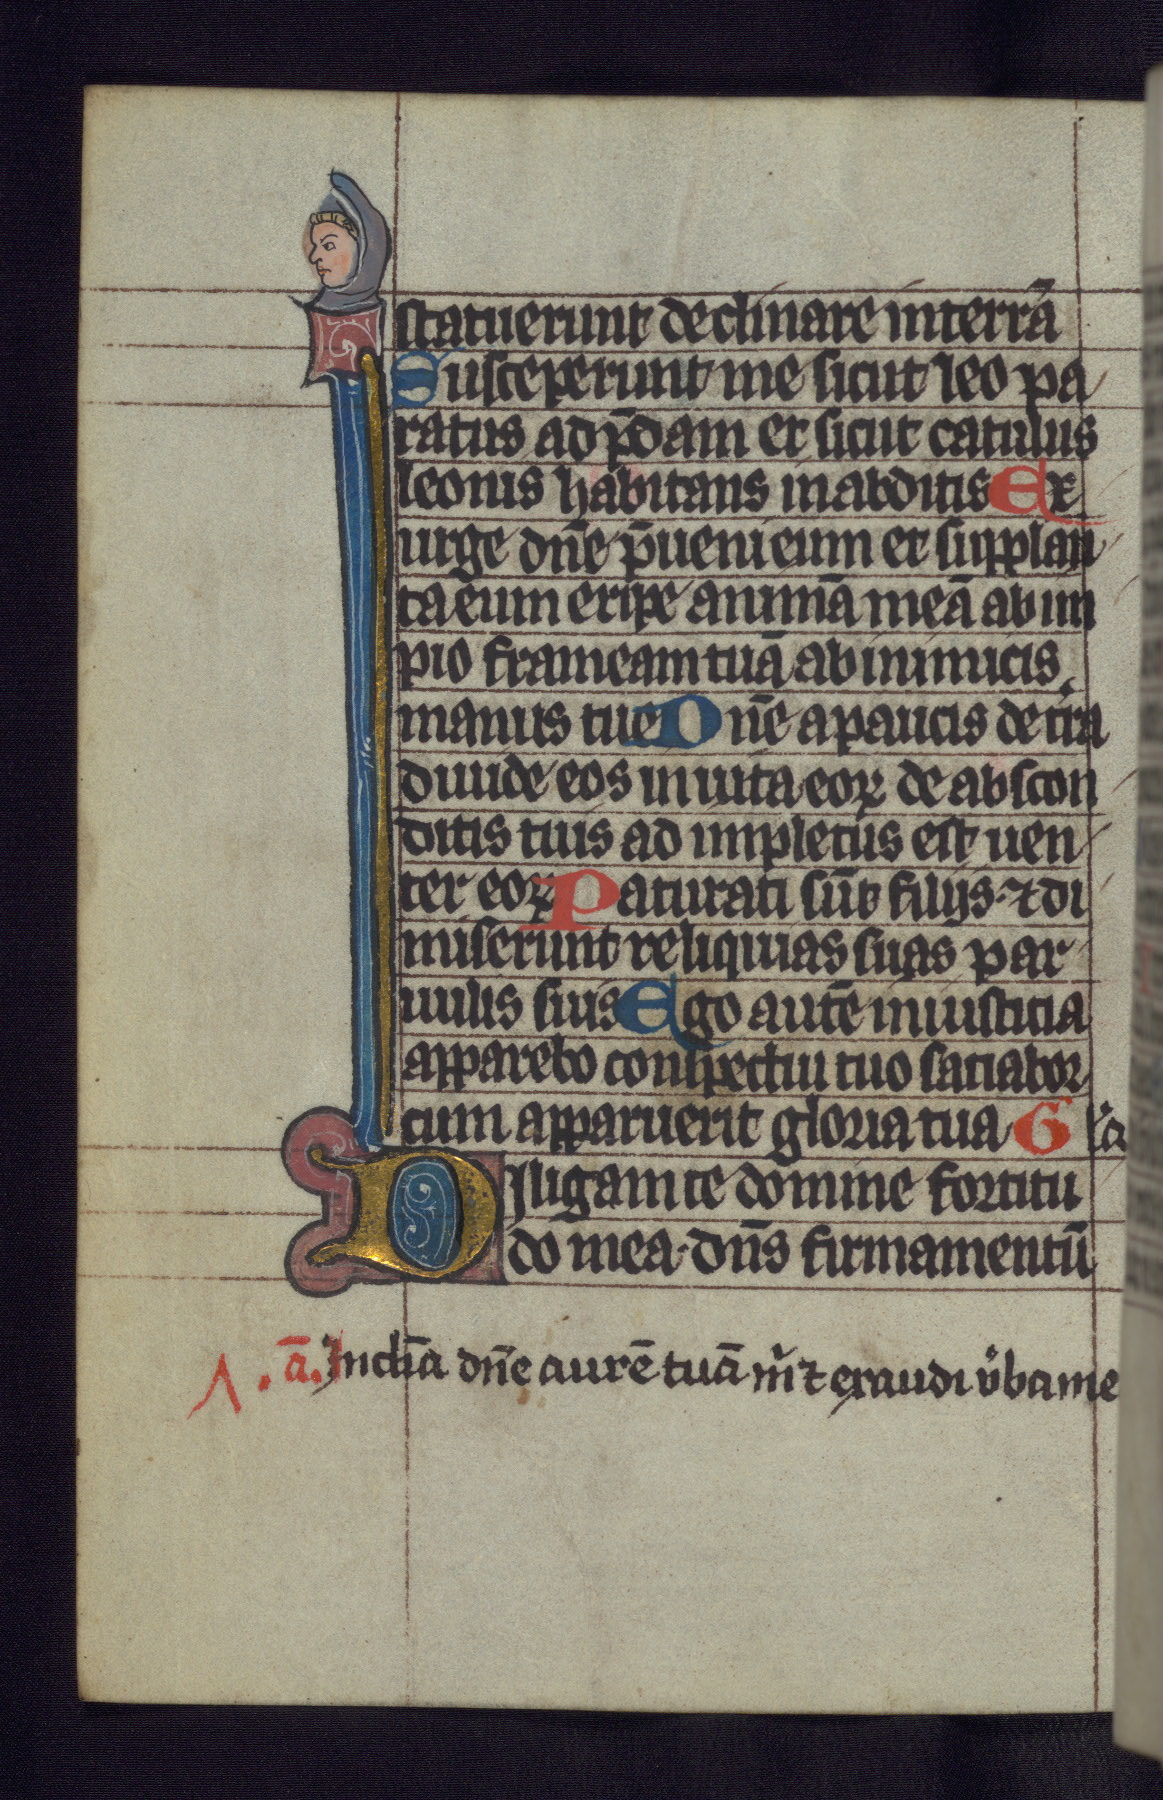 statuerunt declinare in terrā
Susceperunt me sicut leo pa
ratus ad p̄dam et sicut catulus
leonis habitans in abditis Ex
urge dn̄e p̄ueni eum et supplan
ta eum eripe animā meā ab im
pio frameam tuā ab inimicis
manus tue Dn̄e a paucis de tr̄a
diuide eos in uita eoꝝ de abscon
ditis tuis ad impletus est uen
ter eoꝝ Paturati sūt filijs · ⁊ di
miserunt reliquias suas par
uulis suis Ego autē in iusticia
apparebo conspectui tuo satiabor
cum apparuerit gloria tua Gl̓ia
Diligam te domine fortitu
do mea · dn̄s firmamentū
ā. Inclīa dn̄e aurē tuā m̓ ⁊ exaudi v̓ba me